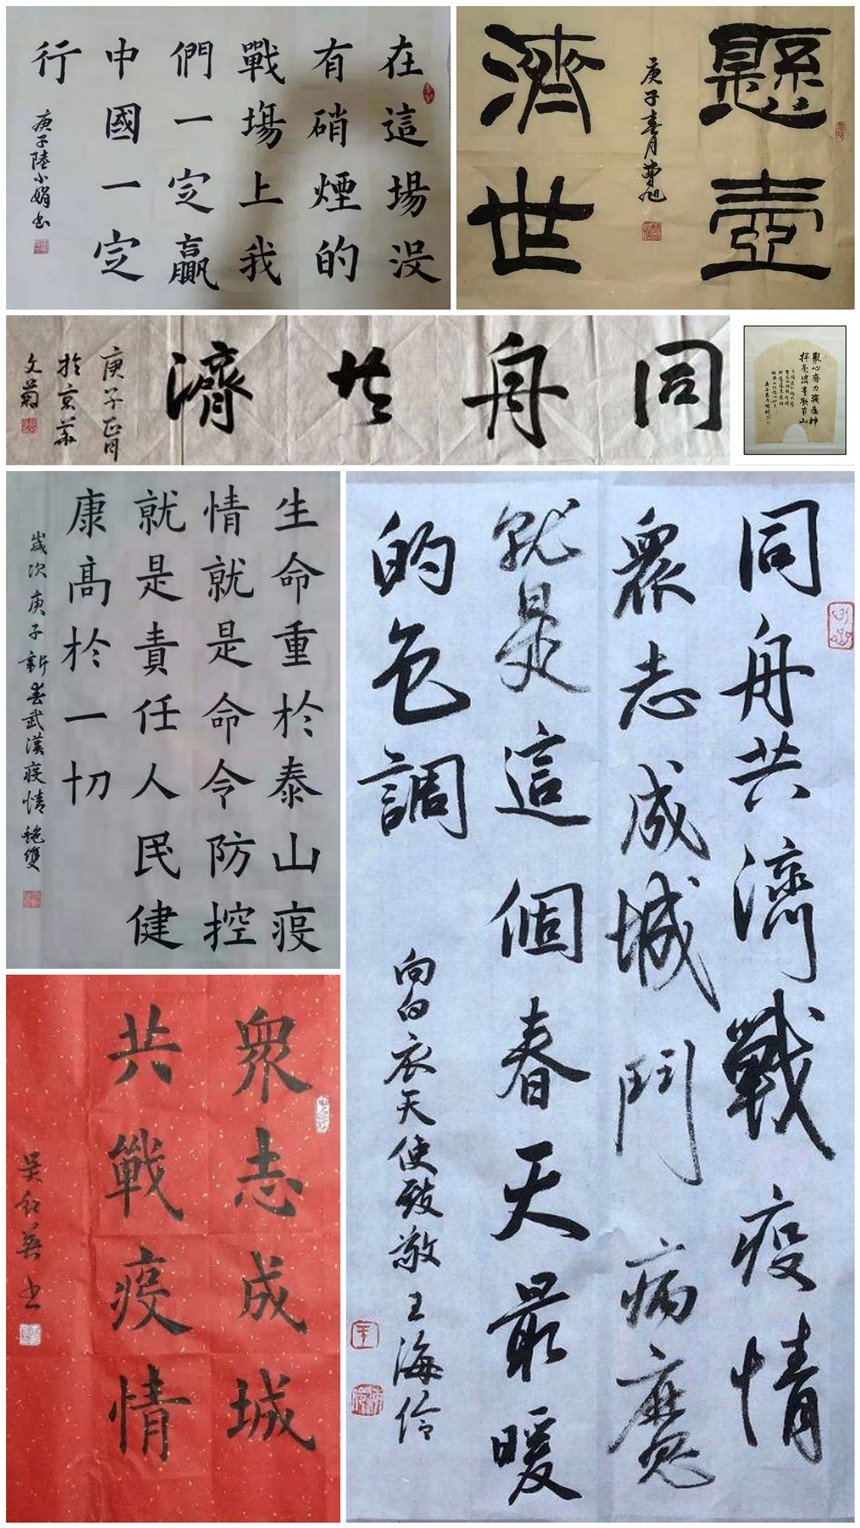 在這場没
有硝煙的
戰場上我
們一定贏
中國一定
行
庚子陸小娟書
懸壺
濟世
庚子春月曹旭
同舟共濟
庚子正月
於京華
文菊
聚心齊力
生命重於泰山疫
情就是命令防控
就是責任人民健
康高於一切
歲次庚子新春武漢疫情
同舟共濟戰疫情
眾志成城鬥病魔
就是這個春天最暖
的色調
向白衣天使致敬王海伶
眾志成城
共戰疫情
吴紅英書